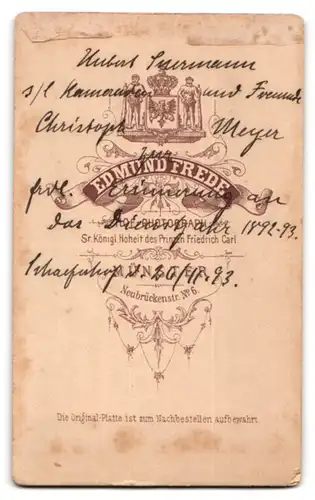 Hubert Suermann
s/l Kameraden und Freunde
Christoph Meyer
zur
EDMUND FREDE
frdl. Erinnerung an
das Dienstjahr 1892-93.
HOF-PHOTOGRAPH
Sr. Königl. Hoheit des Prinzen Friedrich Carl.
MÜNSTER
20/ 93.
Neubrückenstr. No 6.
Die Original-Platte ist zum Nachbestellen aufbewahrt.